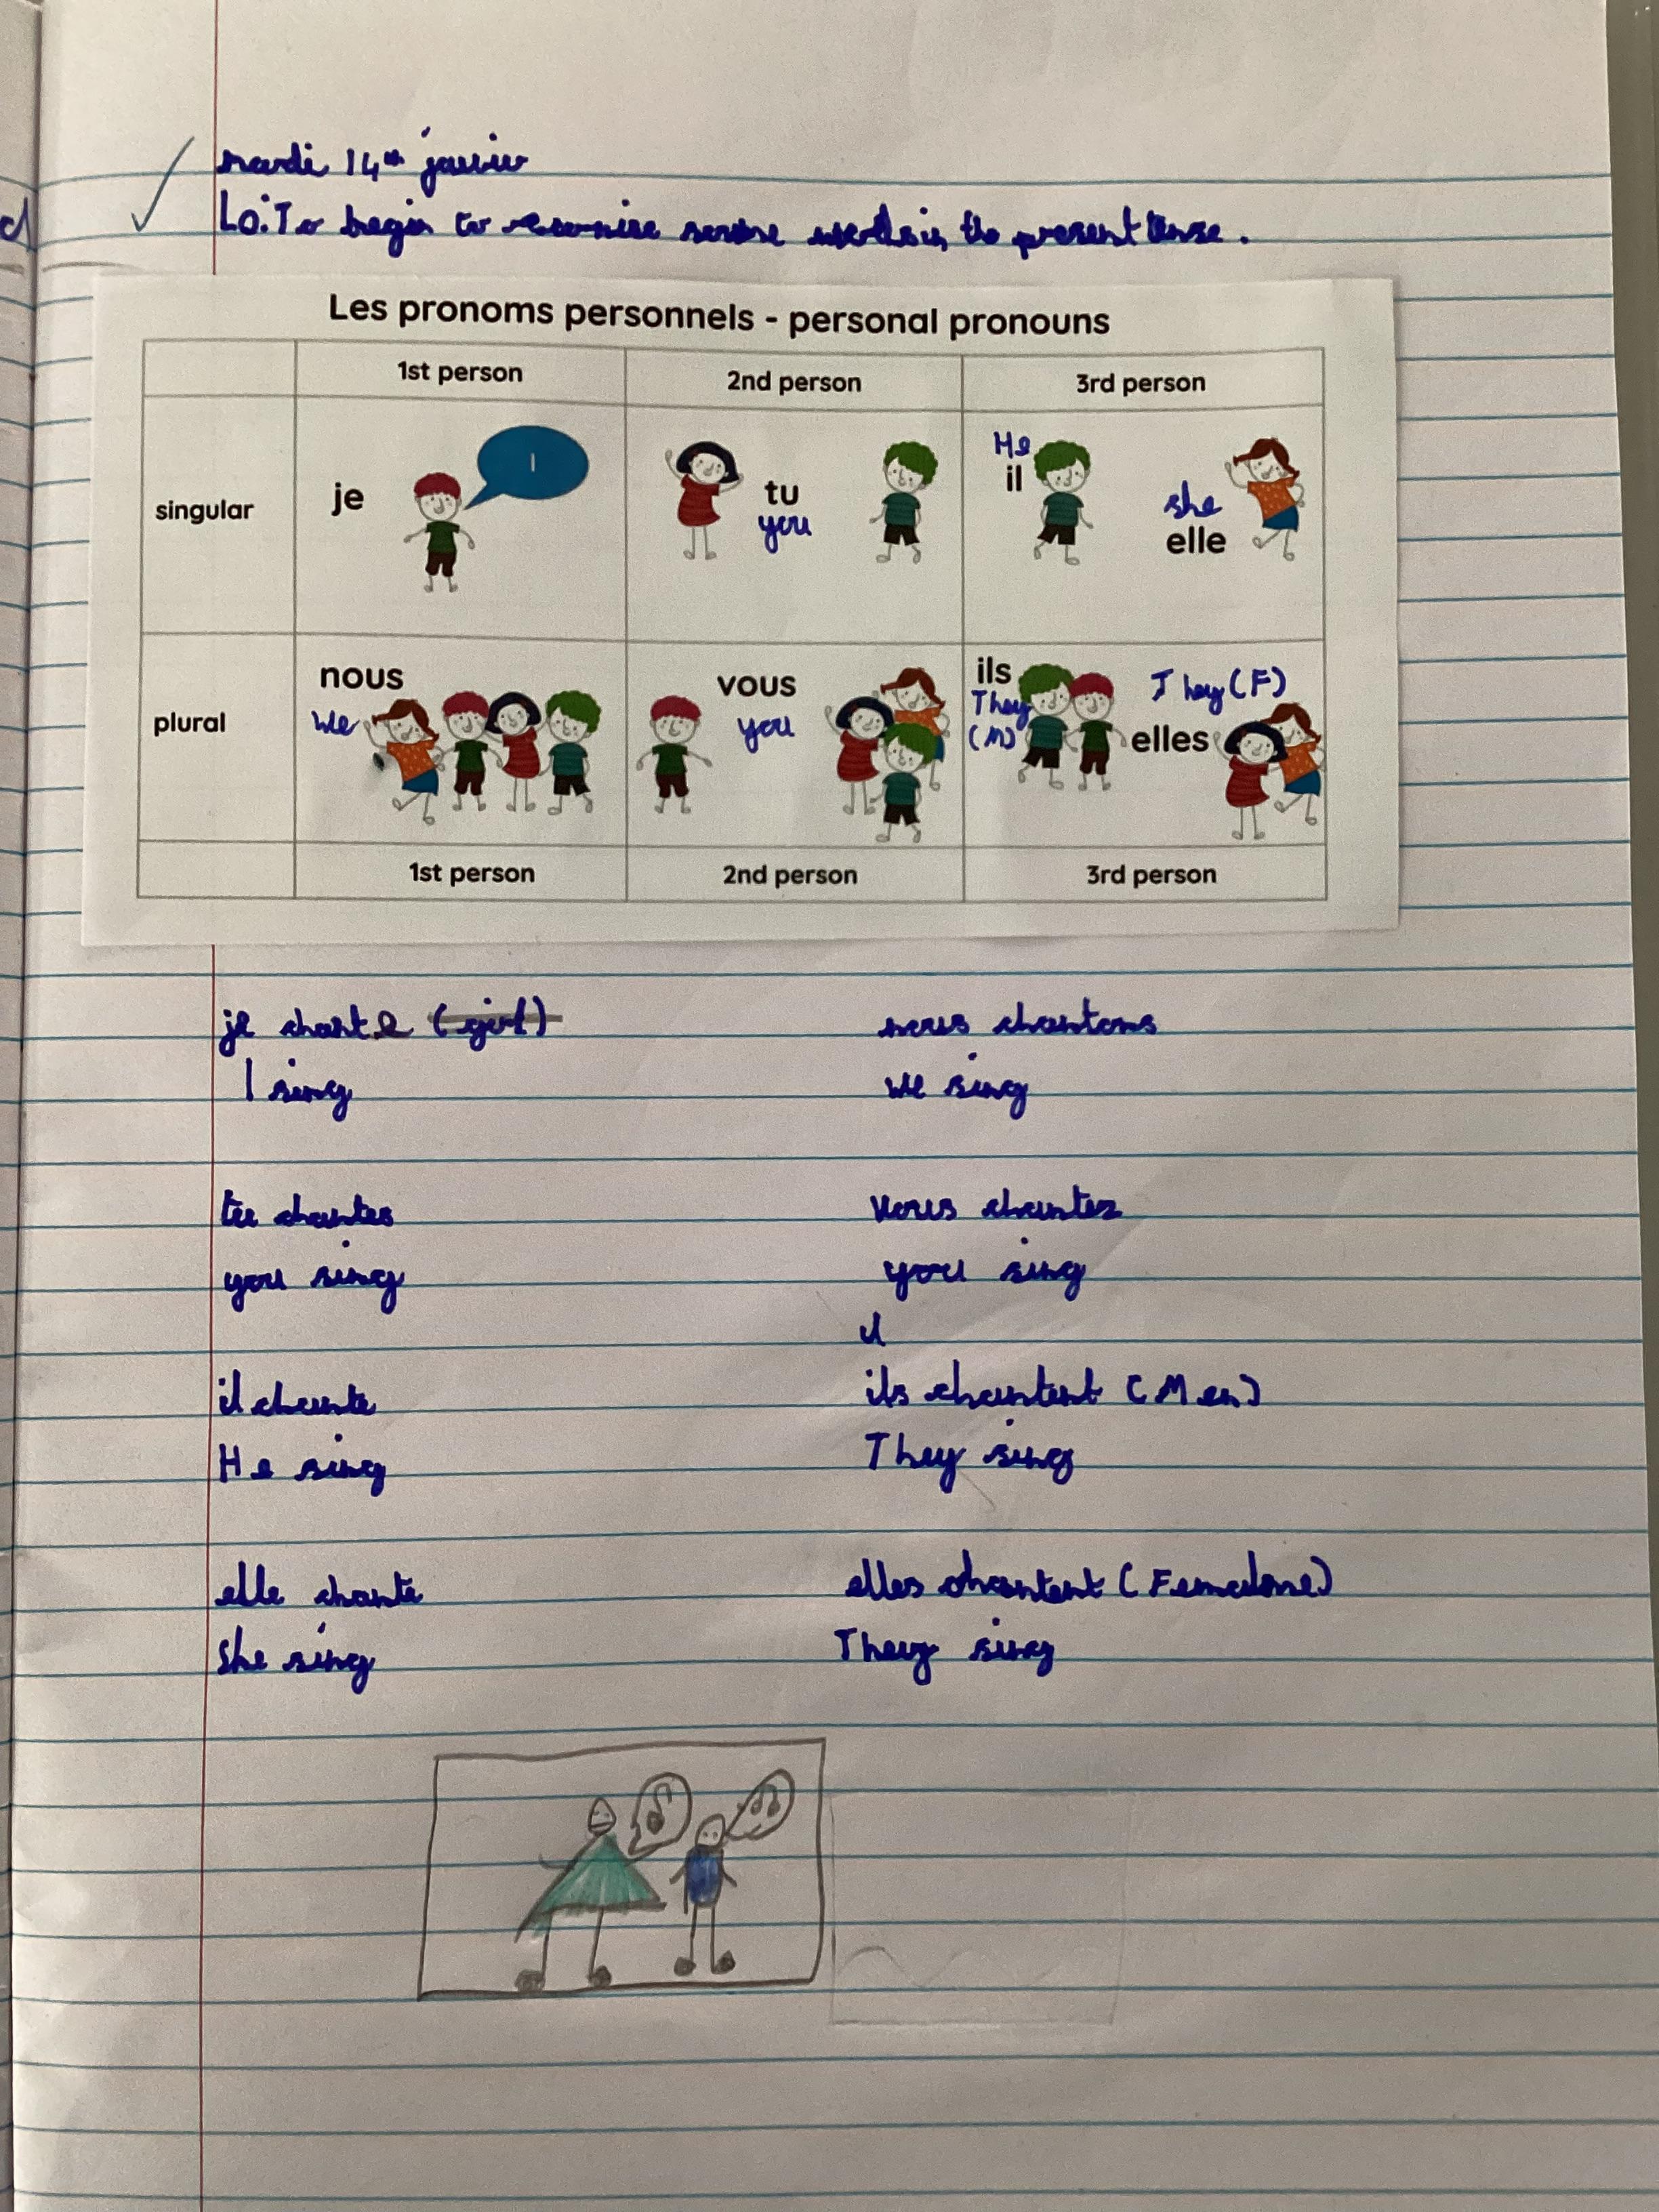 mardi 14th janvier
Lo: To begin to recognise some verbs in the present tense.
Les pronoms personnels - personal pronouns
1st person 2nd person 3rd person
singular je I tu you He il she elle
plural nous we vous you ils They (M) They (F) elles
1st person 2nd person 3rd person
je chante (girl) nous chantons
I sing we sing
tu chantes vous chantez
you sing you sing
il
il chante ils chantent (Men)
He sing They sing
elle chante elles chantent
She sing They sing